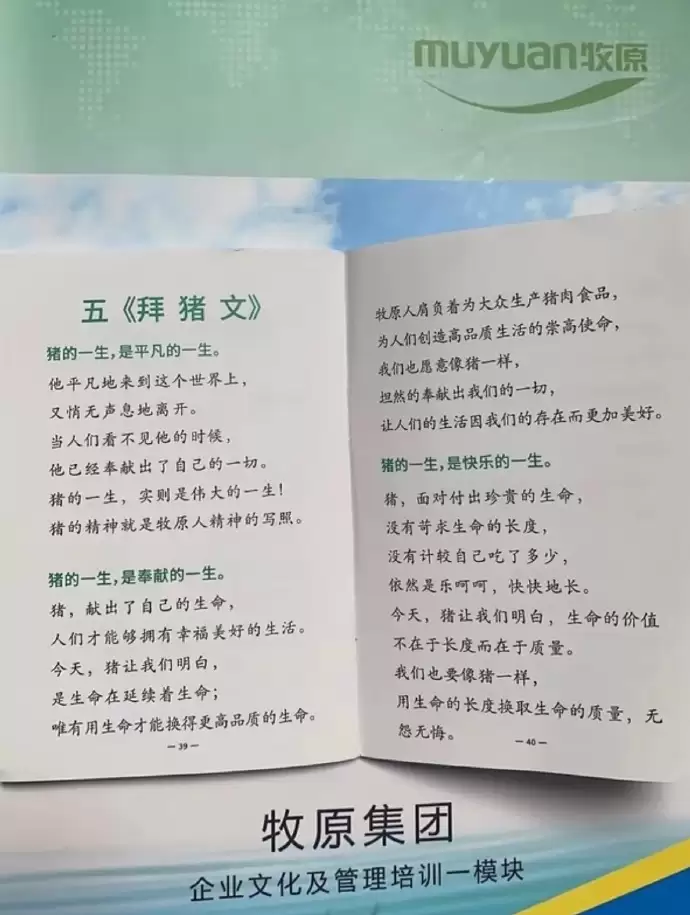 muyuan牧原
五《拜猪文》
猪的一生，是平凡的一生。
他平凡地来到这个世界上，
又悄无声息地离开。
当人们看不见他的时候，
他已经奉献出了自己的一切。
猪的一生，实则是伟大的一生！
猪的精神就是牧原人精神的写照。
猪的一生，是奉献的一生。
猪，献出了自己的生命，
人们才能够拥有幸福美好的生活。
今天，猪让我们明白，
是生命在延续着生命；
唯有用生命才能换得更高品质的生命。
— 39 —
牧原人肩负着为大众生产猪肉食品，
为人们创造高品质生活的崇高使命，
我们也愿意像猪一样，
坦然的奉献出我们的一切，
让人们的生活因我们的存在而更加美好。
猪的一生，是快乐的一生。
猪，面对付出珍贵的生命，
没有苛求生命的长度，
没有计较自己吃了多少，
依然是乐呵呵，快快地长。
今天，猪让我们明白，生命的价值
不在于长度而在于质量。
我们也要像猪一样，
用生命的长度换取生命的质量，无
怨无悔。
— 40 —
牧原集团
企业文化及管理培训一模块